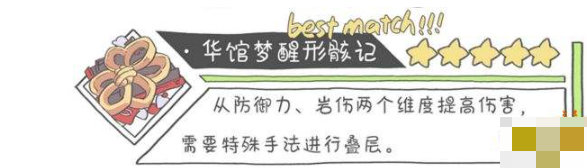 best match!!!
·华馆梦醒形骸记
从防御力、岩伤两个维度提高伤害，
需要特殊手法进行叠层。